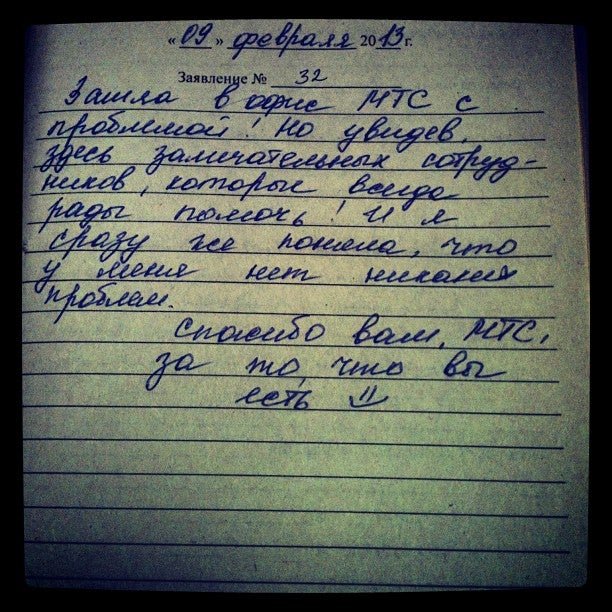 « 09 » февраля 2013 г.
Заявление № 32
Зашла в офис МТС с
проблемой! Но увидев,
здесь замичательных сотруд-
ников, которые всегда
рады помочь! И я
сразу же поняла, что
у меня нет никаких
проблем.
Спасибо вам, МТС,
за то, что вы
есть =)